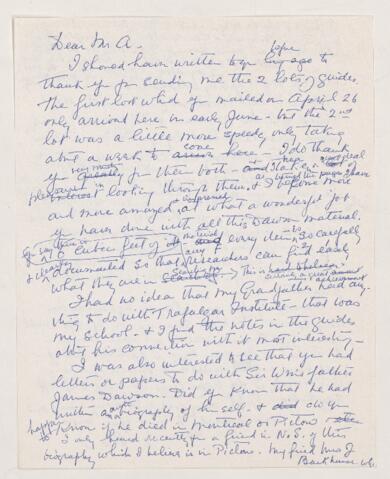 Dear Mr A.
hope
I should have written to you long ago to
thank you for sending me the 2 lots of guides.
The first lot which you mailed on April 26
only arrived here in early June - but the 2nd
lot was a little more speedy only taking
about a week to come here - I do thank
you very much for them both - and deal
pleasure in looking through them, & I become more
and more amazed at what a wonderful job
you have done with all this Dawson material.
entire feet of every item so carefully
documented so that researchers can find easily
what they are in search for. This is
I had no idea that my Grandfather had any-
thing to do with Trafalgar Institute - that was
my School - & I find the notes in the guides
about his connection with it most interesting -
I was also interested to see that you had
letters or papers to do with Sir Wms father
James Dawson. Did you know that he had
written an autobiography of himself. & do you
happen to know if he died in Montreal or Pictou
I only heard recently from a friend in N.S. of this
biography which I believe is in Pictou. My friend Mrs J
Backhouse